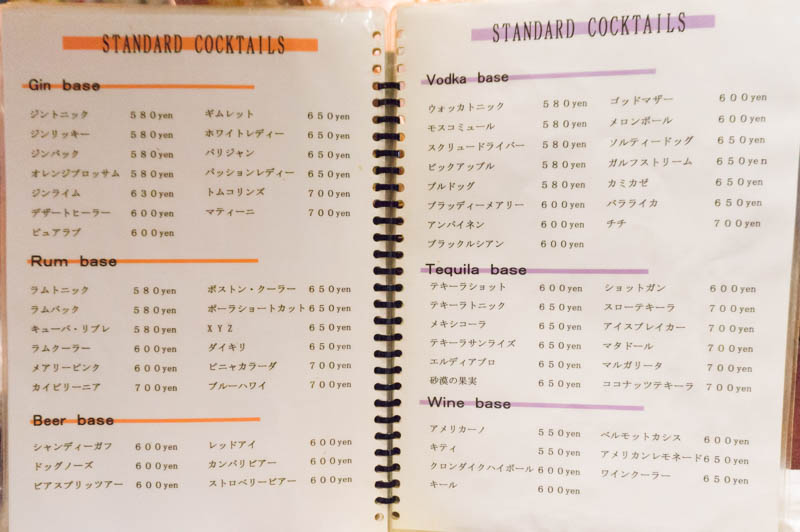 STANDARD COCKTAILS
Gin base
ジントニック 580yen
ジンリッキー 580yen
ジンバック 580yen
オレンジブロッサム 580yen
ジンライム 630yen
デザートヒーラー 600yen
ピュアラブ 600yen
ギムレット 650yen
ホワイトレディー 650yen
パリジャン 650yen
パッションレディー 650yen
トムコリンズ 700yen
マティーニ 700yen
Rum base
ラムトニック 580yen
ラムバック 580yen
キューバ・リブレ 580yen
ラムクーラー 600yen
メアリーピンク 600yen
カイピリーニア 700yen
ボストン・クーラー 650yen
ポーラショートカット 650yen
XYZ 650yen
ダイキリ 650yen
ピニャカラーダ 700yen
ブルーハワイ 700yen
Beer base
シャンディーガフ 600yen
ドッグノーズ 600yen
ビアスプリッツアー 600yen
レッドアイ 600yen
カンパリビアー 600yen
ストロベリービアー 600yen
STANDARD COCKTAILS
Vodka base
ウォッカトニック 580yen
モスコミュール 580yen
スクリュードライバー 580yen
ピックアップル 580yen
ブルドッグ 580yen
ブラッディーメアリー 600yen
アンバイネン 600yen
ブラックルシアン 600yen
ゴッドマザー 600yen
メロンボール 600yen
ソルティードッグ 650yen
ガルフストリーム 650yen
カミカゼ 650yen
バラライカ 650yen
チチ 700yen
Tequila base
テキーラショット 600yen
テキーラトニック 650yen
メキシコーラ 650yen
テキーラサンライズ 650yen
エルディアブロ 650yen
砂漠の果実 650yen
ショットガン 600yen
スローテキーラ 700yen
アイスブレイカー 700yen
マタドール 700yen
マルガリータ 700yen
ココナッツテキーラ 700yen
Wine base
アメリカーノ 550yen
キティ 550yen
クロンダイクハイボール 600yen
キール 600yen
ベルモットカシス 600yen
アメリカンレモネード 650yen
ワインクーラー 650yen